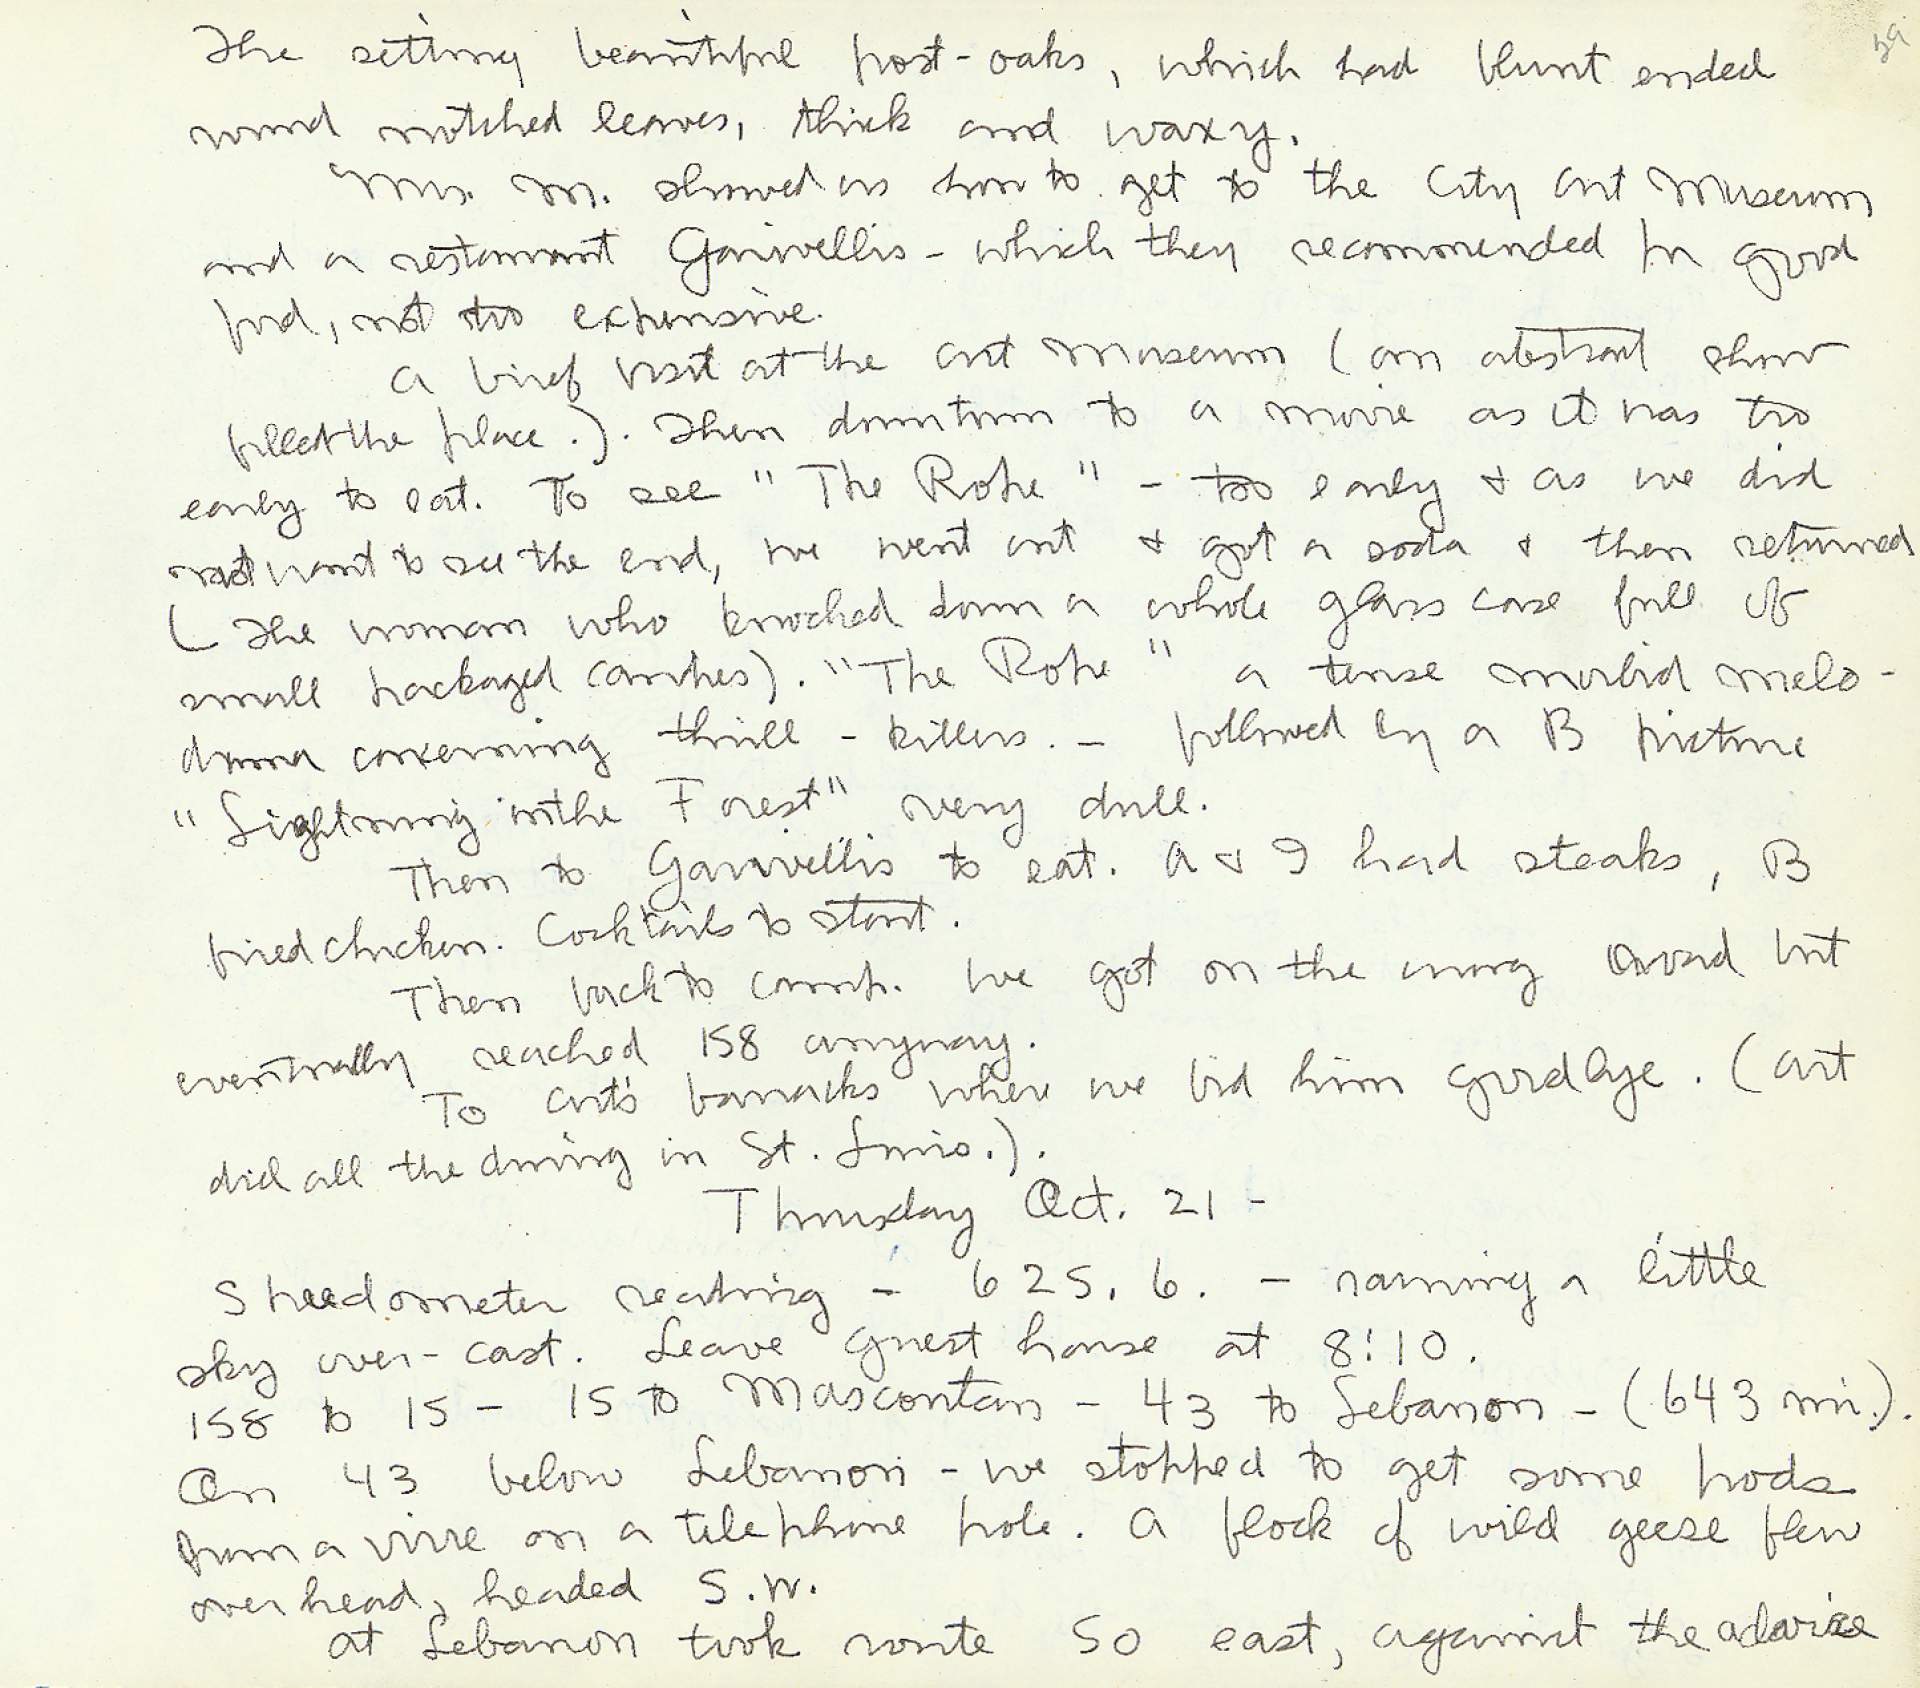 39
The setting beautiful post-oaks, which had blunt ended
round notched leaves, thick and waxy.
Mrs. M. showed us how to get to the City Art Museum
and a restaurant Garavellis - which they recommended for good
food, not too expensive.
A brief visit at the Art Museum (an abstract show
filled the place.). Then downtown to a movie as it was too
early to eat. To see "The Rope" - too early & as we did
not want to see the end, we went out & got a soda & then returned
(The woman who knocked down a whole glass case full of
small packaged candies). "The Rope" a tense morbid melo-
drama concerning thrill - killers. - followed by a B picture
"Lightning in the Forest" very dull.
Then to Garavellis to eat. A & I had steaks, B
fried chicken. Cocktails to start.
Then back to camp. We got on the wrong road but
eventually reached 158 anyway.
To Art's barracks where we bid him goodbye. (Art
did all the driving in St. Louis.).
Thursday Oct. 21 -
Speedometer reading - 625.6. - raining a little
sky over-cast. Leave guest house at 8:10.
158 to 15 - 15 to Mascoutan - 43 to Lebanon - (643 mi.).
On 43 below Lebanon - we stopped to get some pods
from a vine on a telephone pole. A flock of wild geese flew
overhead, headed S.W.
At Lebanon took route 50 east, against the advice